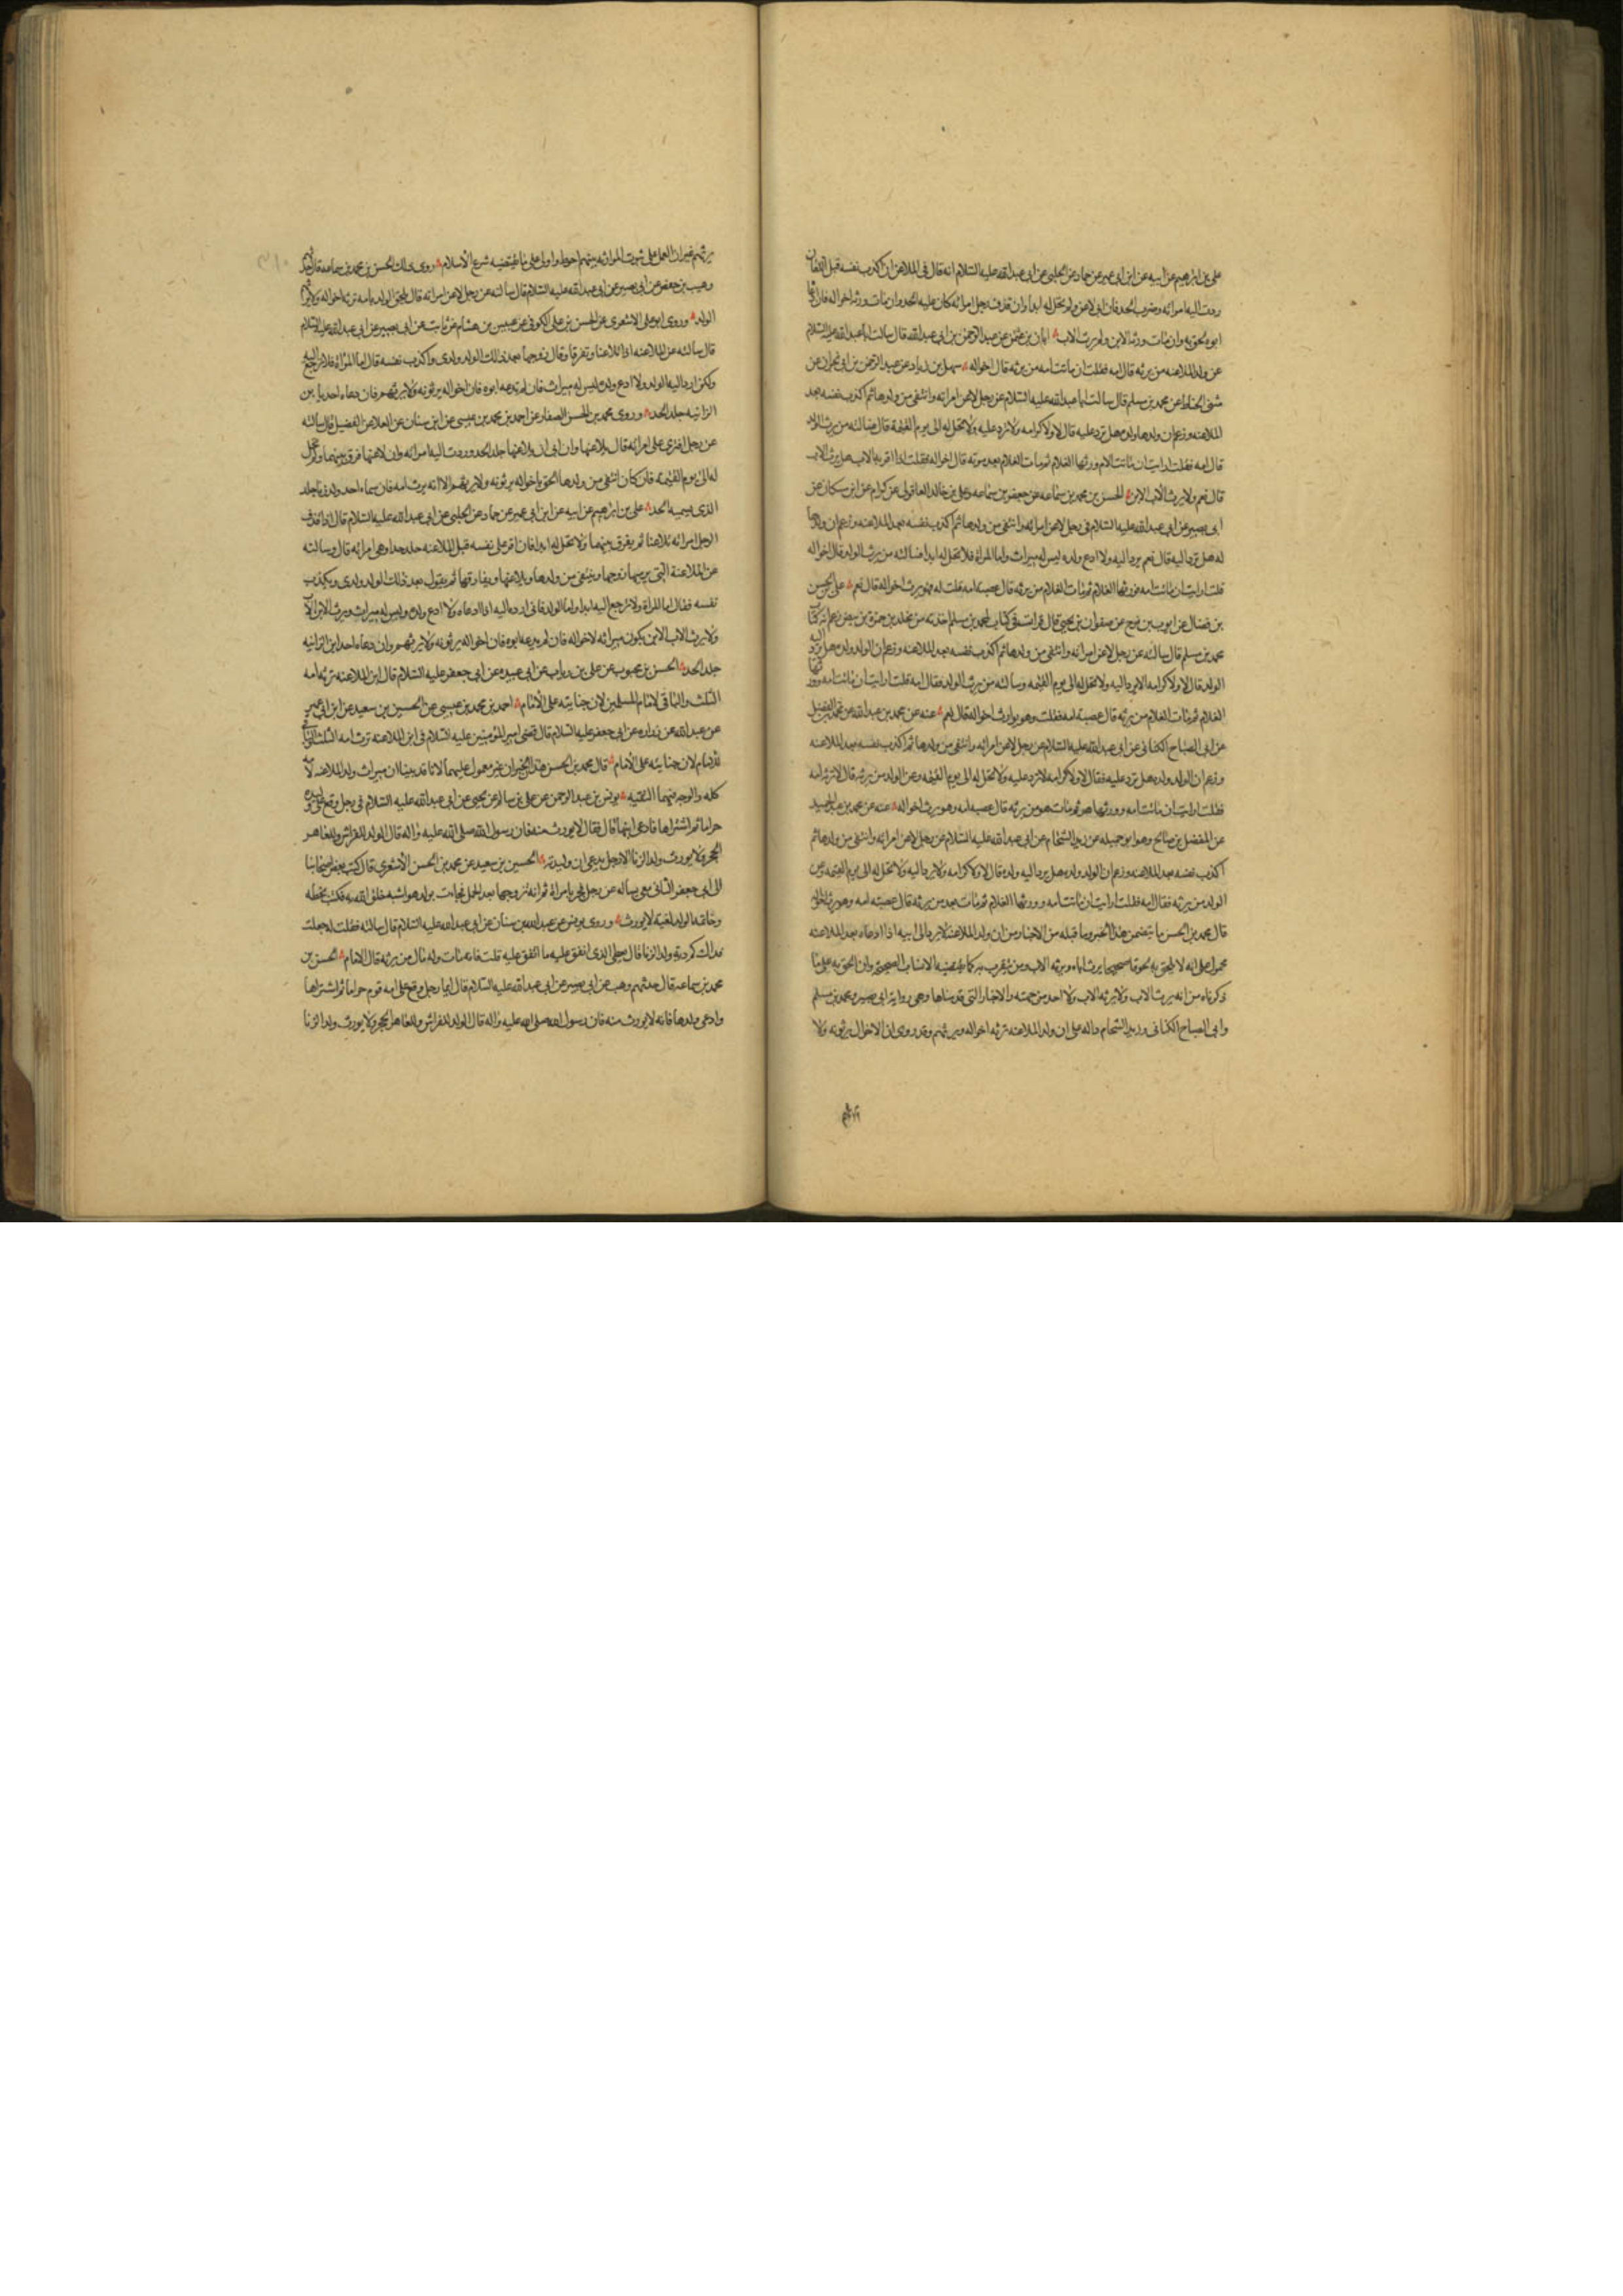 علي بن ابرهيم عن ابيه عن ابن ابي عمير عن حماد عن الحلبي عن ابي عبدالله عليه السلام انه قال في الملاعن ان اكذب نفسه قبل اللعان
ردت اليه امراته وضرب الحد فان ابى لاعن ولم تحل له ابدا وان قذف رجل امراته كان عليه الحد وان مات ورثه اخواله فان ادعاه
ابوه لحق به وان مات ورثه الابن ولم يرث الاب ابان بن عثمن عن عبدالرحمن بن ابي عبدالله قال سالت اباعبدالله عليه السلام
عن ولد الملاعنه من يرثه قال امه فقلت ان ماتت امه من يرثه قال اخواله سهل بن زياد عن عبدالرحمن بن ابي نجران عن
مثنى الحناط عن محمد بن مسلم قال سالت اباعبدالله عليه السلام عن رجل لاعن امراته وانتفى من ولدها ثم اكذب نفسه بعد
الملاعنه وزعم ان ولدها ولده هل ترد عليه قال لا ولا كرامه ولا ترد عليه ولا تحل له الى يوم القيمة قال فسالته من يرث الولد
قال امه فقلت ارايت ان ماتت الام وورثها الغلام ثم مات الغلام بعد موته قال اخواله فقلت اذا اقر به الاب هل يرث الاب
قال نعم ولا يرث الاب الابن الحسن بن محمد بن سماعه عن جعفر بن سماعه وعلي بن خالد العاقولي عن كرام عن ابن مسكان عن
ابي بصير عن ابي عبدالله عليه السلام في رجل لاعن امراته وانتفى من ولدها ثم اكذب نفسه بعد الملاعنه وزعم ان ولدها
له هل ترد اليه قال نعم يرد اليه ولا ادع ولده ليس له ميراث واما المراة فلا تحل له ابدا فسالته من يرث الولد قال اخواله
قلت ارايت ان ماتت امه فورثها الغلام ثم مات الغلام من يرثه قال عصبه امه قلت له فهو يرث اخواله قال نعم علي بن الحسن
بن فضال عن ايوب بن نوح عن صفوان بن يحيى قال قرات في كتاب لمحمد بن مسلم اخذته من مخلد بن حمزة بن بيض زعم انه كتاب
محمد بن مسلم قال سالته عن رجل لاعن امراته وانتفى من ولدها ثم اكذب نفسه بعد الملاعنه وزعم ان الولد ولده هل يرد اليه
الولد قال لا ولا كرامه لا يرد اليه ولا تحل له الى يوم القيمه وسالته من يرث الولد فقال امه قلت ارايت ان ماتت امه وورثها
الغلام ثم مات الغلام من يرثه قال عصبة امه فقلت وهو يوارث اخواله فقال نعم عنه عن محمد بن عبدالله عن محمد بن الفضيل
عن ابي الصباح الكناني عن ابي عبدالله عليه السلام عن رجل لاعن امراته وانتفى من ولدها ثم اكذب نفسه بعد الملاعنه
وزعم ان الولد ولده هل ترد عليه فقال لا ولا كرامه لا ترد عليه ولا تحل له الى يوم القيمه وعن الولد من يرثه قال ترثه امه
فقلت ارايت ان ماتت امه وورثها هو ثم مات هو من يرثه قال عصبه امه وهو يرث اخواله عنه عن محمد بن عبدالحميد
عن المفضل بن صالح وهو ابو جميله عن زيد الشحام عن ابي عبدالله عليه السلام عن رجل لاعن امراته وانتفى من ولدها ثم
اكذب نفسه بعد الملاعنه وزعم ان الولد ولده هل يرد اليه ولده قال لا ولا كرامه ولا يرد اليه ولا تحل له الى يوم القيمه وعن
الولد من يرثه فقال امه فقلت ارايت ان ماتت امه وورثها الغلام ثم مات بعد من يرثه قال عصبته امه وهو يرث اخواله
قال محمد بن الحسن ما يتضمن هذا الخبر وما قبله من الاخبار من ان ولد الملاعنة لا يرد الى ابيه اذا ادعاه بعد الملاعنه
محمول على انه لا يلحق به لحوقا صحيحا يرث اباه ويرثه الاب ومن يتقرب به كما يقتضيه الانساب الصحيحه وان الحق به على ما
ذكرناه من انه يرث الاب ولا يرثه الاب ولا احد من جهته والاخبار التي قدمناها وهي رواية ابي بصير ومحمد بن مسلم
وابي الصباح الكناني وزيد الشحام داله على ان ولد الملاعنه ترثه اخواله ويرثهم وقد روى ان الاخوال يرثونه ولا
يرثهم غير ان العمل على ثبوت الموارثه بينهم احوط واولى على ما يقتضيه شرع الاسلام روى ذلك الحسن بن محمد بن سماعه قال حدثهم
وهيب بن حفص عن ابي بصير عن ابي عبدالله عليه السلام قال سالته عن رجل لاعن امراته قال يلحق الولد بامه ترثه اخواله ولا يرثهم
الولد وروى ابو علي الاشعري عن الحسن بن علي الكوفي عن عبيس بن هشام عن ثابت عن ابي بصير عن ابي عبدالله عليه السلام
قال سالته عن الملاعنه اذا تلاعنا وتفرقا وقال زوجها بعد ذلك الولد ولدي واكذب نفسه قال اما المراة فلا ترجع اليه
ولكن ارد اليه الولد ولا ادع ولده ليس له ميراث فان لم يدعه ابوه فان اخواله يرثونه ولا يرثهم فان دعاه احد يا بن
الزانيه جلد الحد وروى محمد بن الحسن الصفار عن احمد بن محمد بن عيسى عن ابن سنان عن العلا عن الفضيل قال سالته
عن رجل افترى على امراته قال يلاعنها وان ابى ان يلاعنها جلد الحد وردت اليه امراته وان لاعنها فرق بينهما ولم تحل
له الى يوم القيمة فان كان انتفى من ولدها الحق باخواله يرثونه ولا يرثهم الا انه يرث امه فان سماه احد ولد زنا جلد
الذي يسميه الحد علي بن ابرهيم عن ابيه عن ابن ابي عمير عن حماد عن الحلبي عن ابي عبدالله عليه السلام قال اذا قذف
الرجل امراته تلاعنا ثم يفرق بينهما ولا تحل له ابدا فان اقر على نفسه قبل الملاعنه جلد حدا وهي امراته قال وسالته
عن الملاعنة التي يرميها زوجها وينتفي من ولدها ويلاعنها ويفارقها ثم يقول بعد ذلك الولد ولدي ويكذب
نفسه فقال اما المراة ولا ترجع اليه ابدا واما الولد فاني ارده اليه اذا ادعاه ولا ادع ولده وليس له ميراث ويرث الابن الاب
ولا يرث الاب الابن يكون ميراثه لاخواله فان لم يدعه ابوه فان اخواله يرثونه ولا يرثهم وان دعاه احد ابن الزانيه
جلد الحد الحسن بن محبوب عن علي بن رياب عن ابي عبيده عن ابي جعفر عليه السلام قال ابن الملاعنه ترثه امه
الثلث والباقي لامام المسلمين لان جنايته على الامام احمد بن محمد بن عيسى عن الحسين بن سعيد عن ابن ابي عمير
عن عبدالله عن زراره عن ابي جعفر عليه السلام قال قضى امير المؤمنين عليه السلام في ابن الملاعنه ترث امه الثلث والباقي
للامام لان جنايته على الامام قال محمد بن الحسن هذا الخبران غير معمول عليهما لانا قد بينا ان ميراث ولد الملاعنه لامه
كله والوجه فيهما التقيه يونس بن عبدالرحمن عن علي بن سالم عن يحيى عن ابي عبدالله عليه السلام في رجل وقع على وليدة
حراما ثم اشتراها فادعى ابنها قال فقال لا يورث منه فان رسول الله صلى الله عليه واله قال الولد للفراش وللعاهر
الحجر ولا يورث ولد الزنا الا رجل يدعي ان وليدته الحسين بن سعيد عن محمد بن الحسن الاشعري قال كتب بعض اصحابنا
الى ابي جعفر الثاني معي يساله عن رجل فجر بامراة ثم انه تزوجها بعد الحمل فجاءت بولد هو اشبه خلق الله به فكتب بخطه
وخاتمه الولد لغيه لا يورث وروى يونس عن عبدالله بن سنان عن ابي عبدالله عليه السلام قال سالته فقلت له جعلت
فداك كم دية ولد الزنا قال يعطى الذي انفق عليه ما انفق عليه قلت فانه مات وله مال من يرثه قال الامام الحسن بن
محمد بن سماعه قال حدثهم وهيب عن ابي بصير عن ابي عبدالله عليه السلام قال ايما رجل وقع على امه قوم حراما ثم اشتراها
وادعى ولدها فانه لا يورث منه فان رسول الله صلى الله عليه واله قال الولد للفراش وللعاهر الحجر ولا يورث ولد الزنا